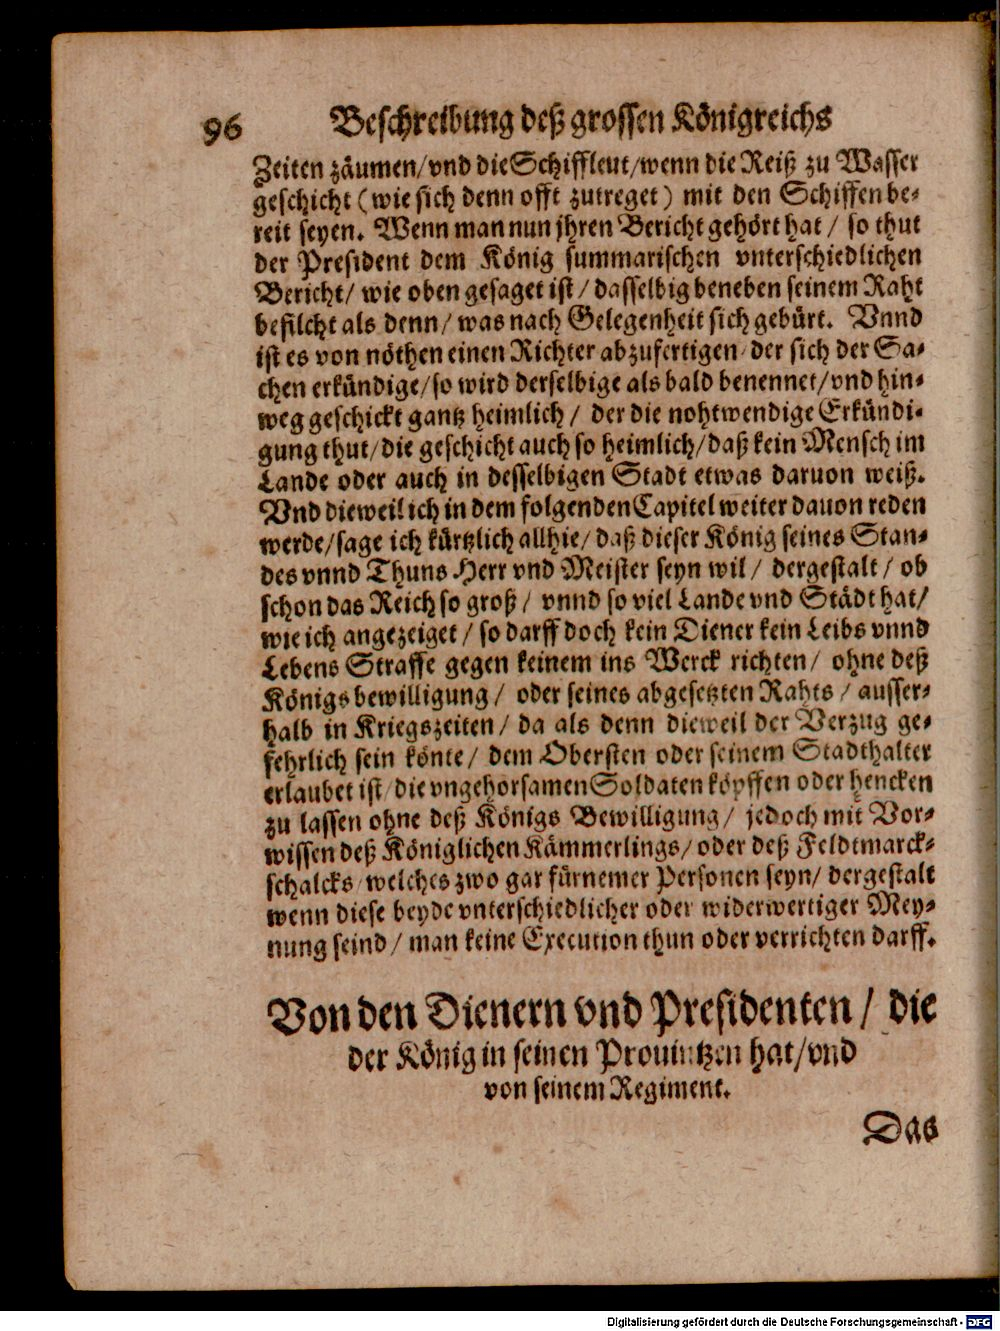 96 Beschreibung deß grossen Königreichs
Zeiten zäumen/vnd die Schiffleut/wenn die Reiß zu Wasser
geschicht (wie sich denn offt zutreget) mit den Schiffen be-
reit seyen. Wenn man nun jhren Bericht gehört hat / so thut
der President dem König summarischen vnterschiedlichen
Bericht/ wie oben gesaget ist / dasselbig beneben seinem Raht
befilcht als denn/ was nach Gelegenheit sich gebürt. Vnnd
ist es von nöthen einen Richter abzufertigen/ der sich der Sa-
chen erkündige/so wird derselbige als bald benennet/vnd hin-
weg geschickt gantz heimlich / der die nohtwendige Erkündi-
gung thut/die geschicht auch so heimlich/daß kein Mensch im
Lande oder auch in desselbigen Stadt etwas daruon weiß.
Vnd dieweil ich in dem folgenden Capitel weiter dauon reden
werde/sage ich kürtzlich allhie/ daß dieser König seines Stan-
des vnnd Thuns Herr vnd Meister seyn wil / dergestalt / ob
schon das Reich so groß / vnnd so viel Lande vnd Städt hat/
wie ich angezeiget / so darff doch kein Diener kein Leibs vnnd
Lebens Straffe gegen keinem ins Werck richten/ ohne deß
Königs bewilligung / oder seines abgesetzten Rahts / ausser-
halb in Kriegszeiten / da als denn dieweil der Verzug ge-
fehrlich sein könte / dem Obersten oder seinem Stadthalter
erlaubet ist/ die vngehorsamen Soldaten köpffen oder hencken
zu lassen ohne deß Königs Bewilligung/ jedoch mit Vor-
wissen deß Königlichen Kämmerlings/ oder deß Feldtmarck-
schalcks/ welches zwo gar fürnemer Personen seyn/ dergestalt
wenn diese beyde vnterschiedlicher oder widerwertiger Mey-
nung seind / man keine Execution thun oder verrichten darff.
Von den Dienern vnd Presidenten / die
der König in seinen Prouintzen hat/vnd
von seinem Regiment.
Das
Digitalisierung gefördert durch die Deutsche Forschungsgemeinschaft - DFG